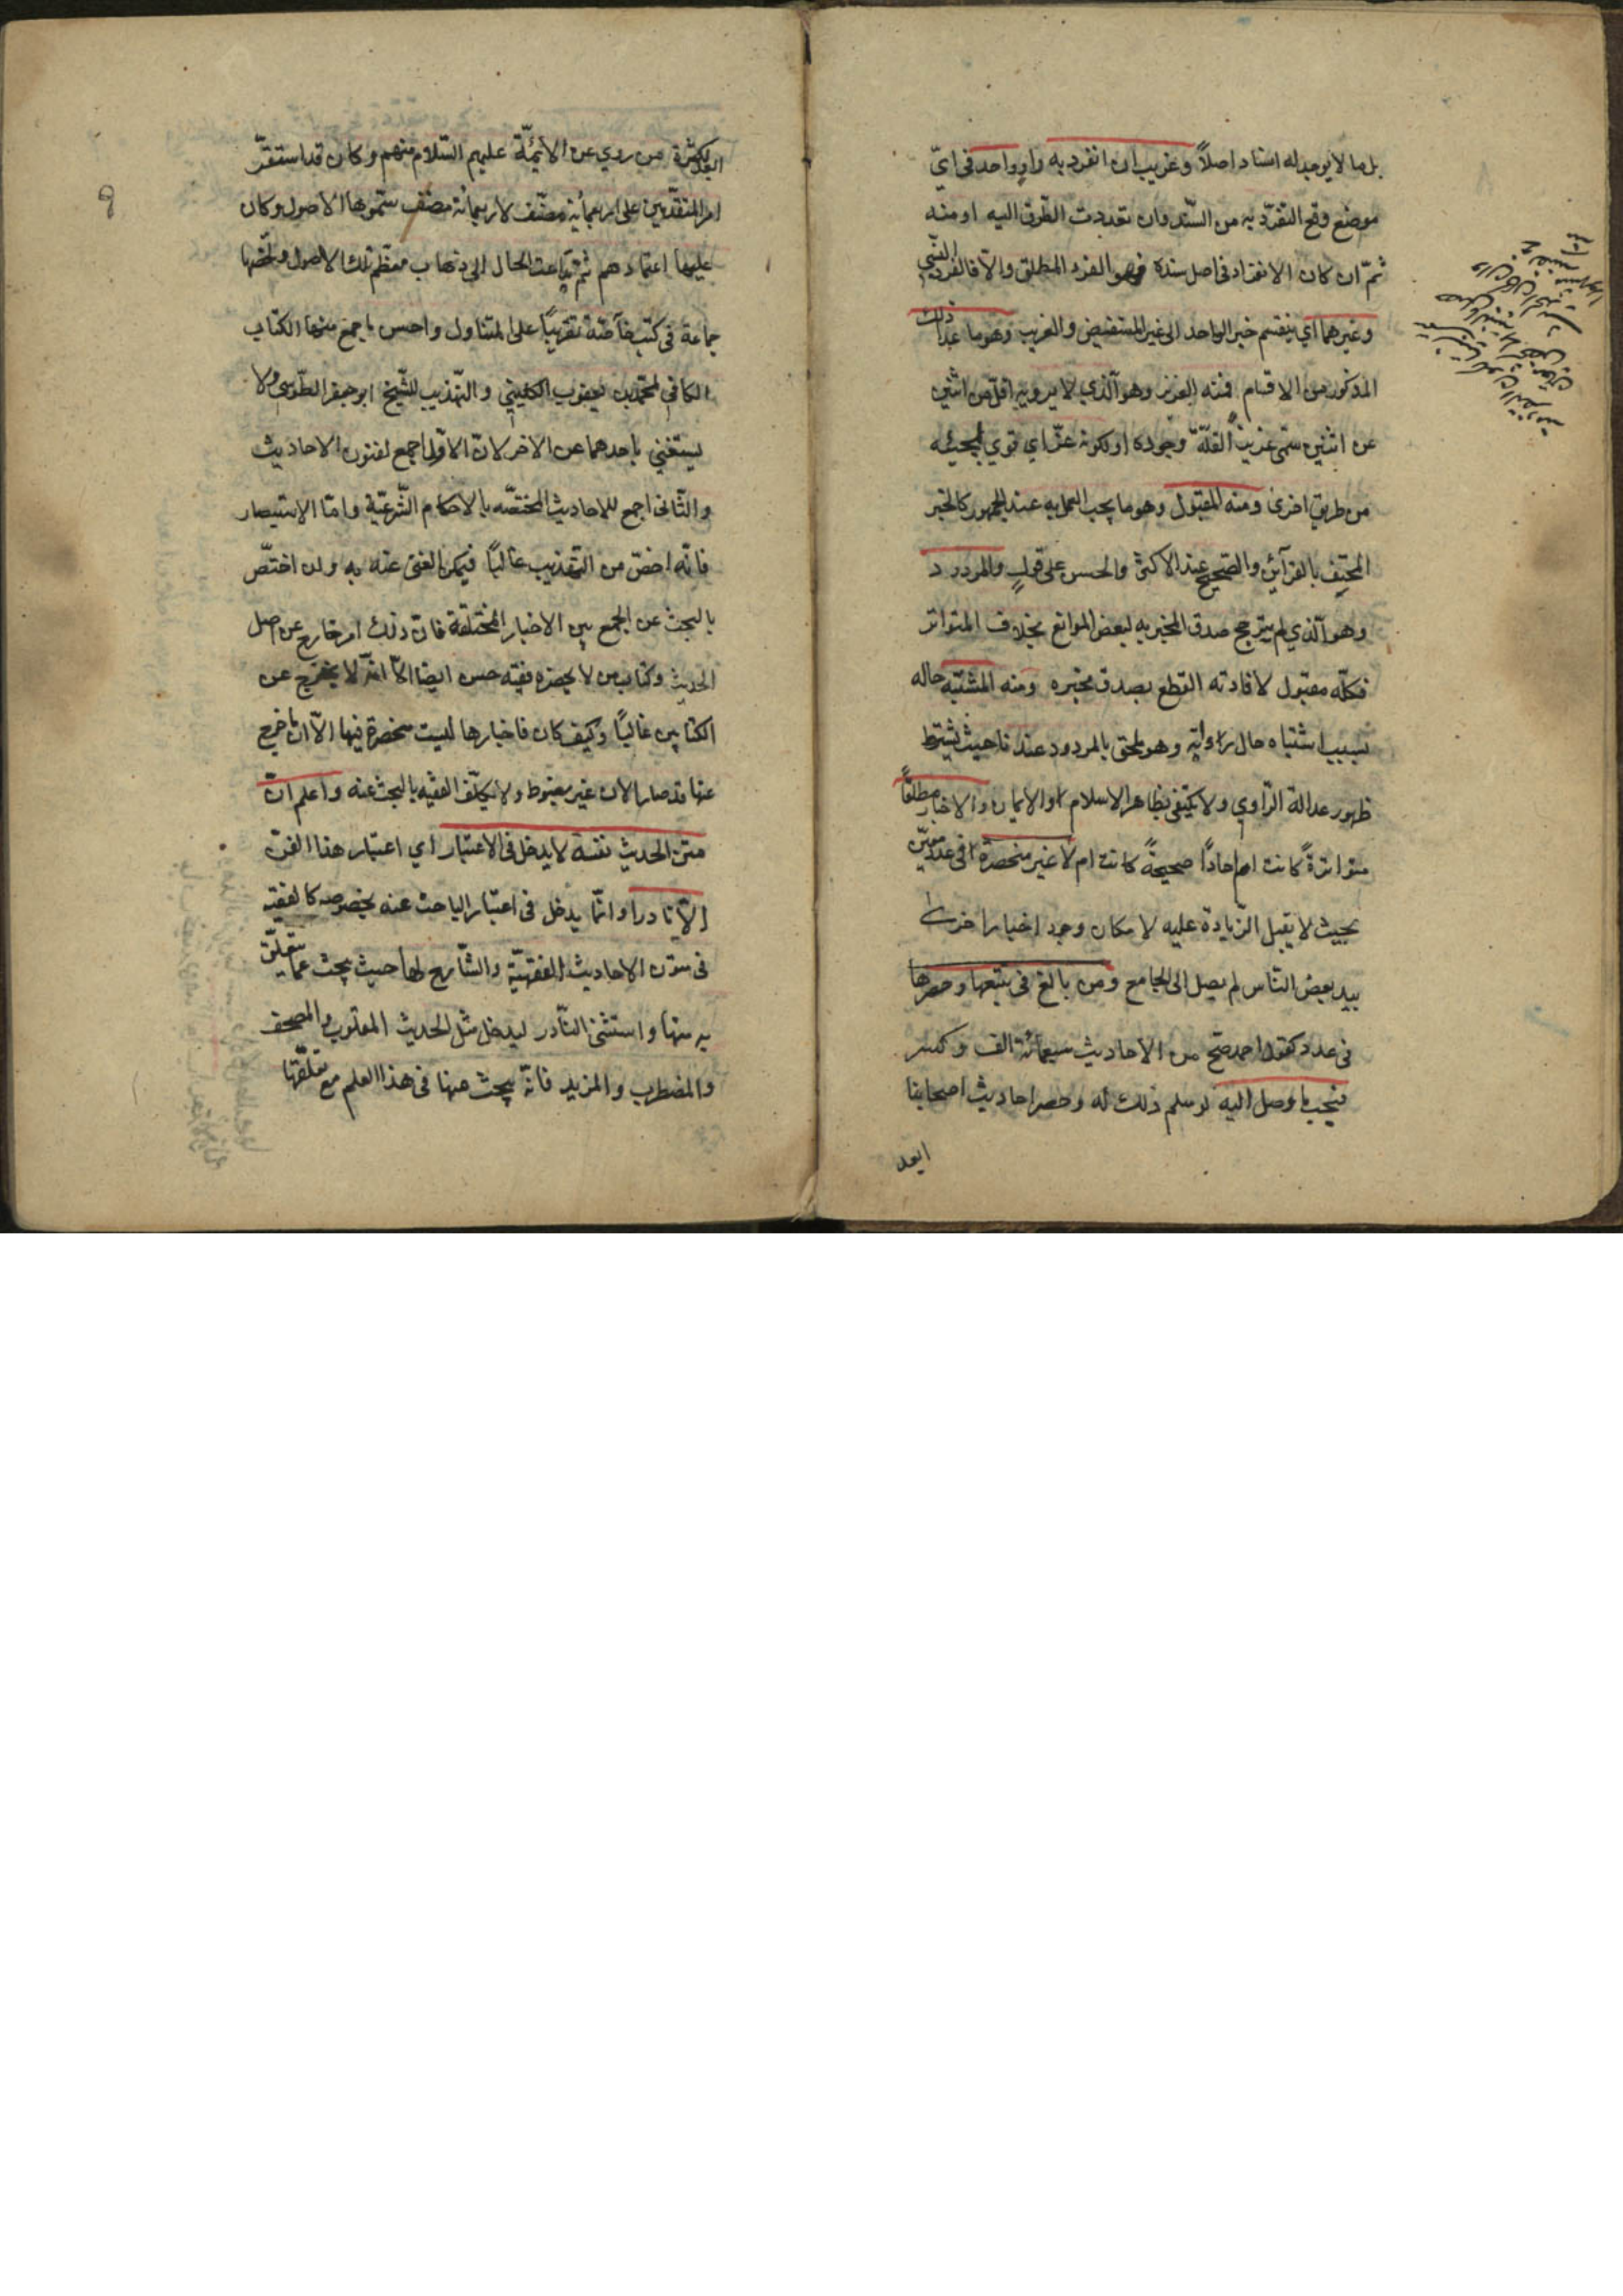 بل ما لا يوجد له اسناد اصلاً وغريب ان انفرد به راوٍ واحد فى ايّ
موضع وقع التفرّد به من السّند وان تعددت الطّرق اليه او منه
ثمّ ان كان الانفراد فى اصل سنده فهو الفرد المطلق والّا فالفرد النّسبي
وغيرهما اي ينقسم خبر الواحد الى غير المستفيض والغريب وهو ما عدا ذلك
المذكور من الاقسام فمنه العزيز وهو الّذي لا يرويه اقلّ من اثنين
عن اثنين سمّى عزيزاً لقلّة وجوده او لكونه عزّ اي قوي لمجيئه
من طريق اخرى ومنه المقبول وهو ما يجب العمل به عند الجمهور كالخبر
المحتف بالقرآئن والصّحيح عند الاكثر والحسن على قولٍ والمردود
وهو الّذي لم يترجح صدق المخبر به لبعض الموانع بخلاف المتواتر
فكلّه مقبول لافادته القطع بصدق مخبره ومنه المشتبه حاله
بسبب اشتباه حال راويه وهو ملحق بالمردود عندنا حيث يشترط
ظهور عدالة الرّاوي ولا يكتفى بظاهر الاسلام او الايمان والاخبار مطلقاً
متواترةً كانت ام احاداً صحيحةً كانت ام لا غير منحصرة فى عدد معيّن
بحيث لا يقبل الزّيادة عليه لامكان وجود اخبار اخرى
بيد بعض النّاس لم يصل الى الجامع ومن بالغ فى تتبعها وحصرها
فى عدد كقول احمد صحّ من الاحاديث سبعمائة الف وكسر
فبحسب ما وصل اليه لو سلم ذلك له وحصر احاديث اصحابنا
ابعد
ابعد لكثرة من روي عن الائمّة عليهم السّلام منهم وكان قد استقرّ
امر المتقدّمين على اربعمائة مصنّف لاربعمائة مصنّف سمّوها الاصول وكان
عليها اعتمادهم ثمّ تداعت الحال الى ذهاب معظم تلك الاصول ولخّصها
جماعة فى كتب خآصّة تقريباً على المتناول واحسن ما جمع منها الكتاب
الكافى لمحمّد بن يعقوب الكلينيّ والتّهذيب للشّيخ ابو جعفر الطّوسى ولا
يستغني باحدهما عن الاخر لانّ الاوّل اجمع لفنون الاحاديث
والثّانى اجمع للاحاديث المختصّة بالاحكام الشّرعيّة وامّا الاستبصار
فانّه اخصّ من التّهذيب غالباً فيمكن الغنى عنه به وان اختصّ
بالبحث عن الجمع بين الاخبار المختلفة فانّ ذلك امر خارج عن اصل
الحديث وكتاب من لا يحضره فقيه حسن ايضا الّا انّه لا يخرج عن
الكتابين غالباً وكيف كان فاخبارها ليست منحصرة فيها الّا انّ ما خرج
عنها قد صار الان غير مضبوط ولا يكلّف الفقيه بالبحث عنه واعلم انّ
متن الحديث نفسه لا يدخل فى الاعتبار اي اعتبار هذا الفنّ
الّا نادرا وانّما يدخل فى اعتبار الباحث عنه بخصوصه كالفقيه
فى متون الاحاديث الفقهيّة والشّارح لها حيث يبحث عمّا يتعلّق
به منها واستثنى النّادر ليدخل مثل الحديث المقلوب والمصحف
والمضطرب والمزيد فانّه يبحث عنها فى هذا العلم مع تعلّقها